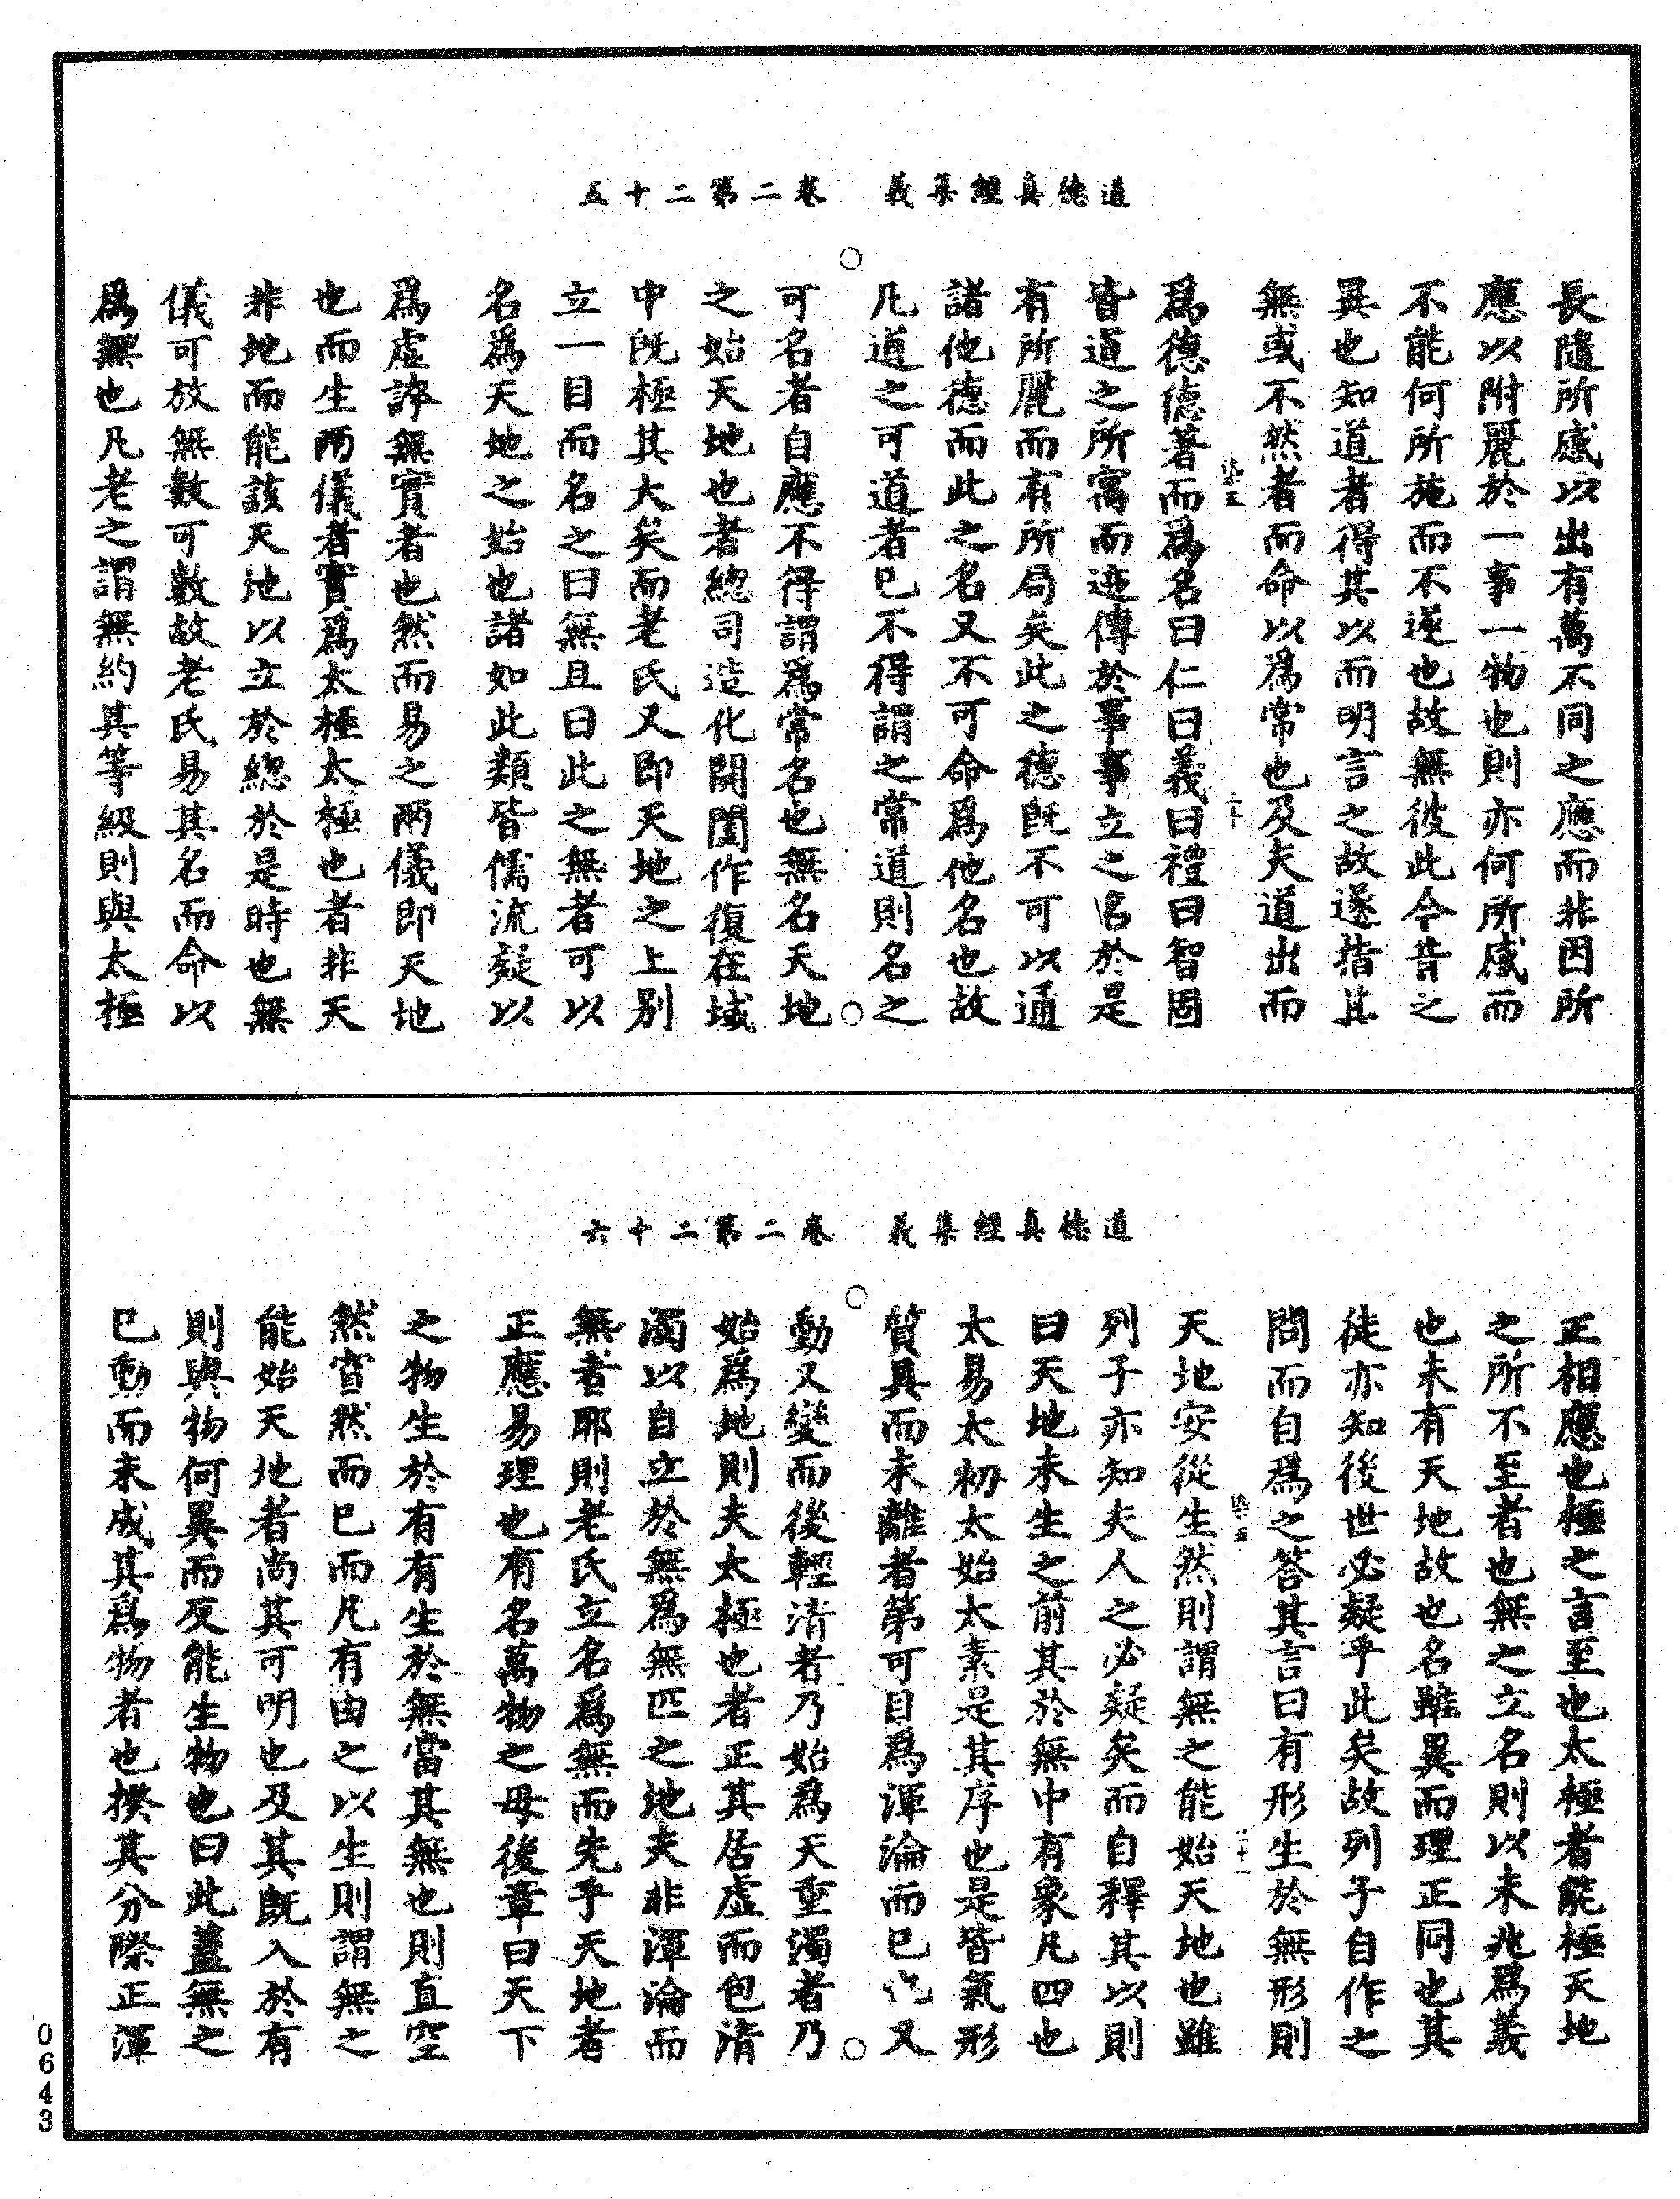 道德真經集義　卷二第二十五
長隨所感以出有萬不同之應而非因所
應以附麗於一事一物也則亦何所感而
不能何所施而不遂也故無彼此今昔之
異也知道者得其以而明言之故遂指其
無或不然者而命以為常也及夫道出而
為德德著而為名曰仁曰義曰禮曰智固
皆道之所寓而迹傳於事事立之名於是
有所麗而有所局矣此之德既不可以通
諸他德而此之名又不可命為他名也故
凡道之可道者已不得謂之常道則名之
可名者自應不得謂為常名也無名天地
之始天地也者總司造化開闔作復在域
中既極其大矣而老氏又即天地之上別
立一目而名之曰無且曰此之無者可以
名為天地之始也諸如此類皆儒流疑以
為虛誶無實者也然而易之兩儀即天地
也而生兩儀者實為太極太極也者非天
非地而能該天地以立於總於是時也無
儀可放無數可數故老氏易其名而命以
為無也凡老之謂無約其等級則與太極
道德真經集義　卷二第二十六
正相應也極之言至也太極者能極天地
之所不至者也無之立名則以未兆為義
也未有天地故也名雖異而理正同也其
徒亦知後世必疑乎此矣故列子自作之
問而自為之答其言曰有形生於無形則
天地安從生然則謂無之能始天地也雖
列子亦知夫人之必疑矣而自釋其以則
曰天地未生之前其於無中有象凡四也
太易太初太始太素是其序也是皆氣形
質具而未離者第可目為渾淪而已又
動又變而後輕清者乃始為天重濁者乃
始為地則夫太極也者正其居虛而包清
濁以自立於無為無匹之地夫非渾淪而
無者耶則老氏立名為無而先乎天地者
正應易理也有名萬物之母後章曰天下
之物生於有有生於無當其無也則直空
然窅然而已而凡有由之以生則謂無之
能始天地者尚其可明也及其既入於有
則與物何異而反能生物也曰此蓋無之
已動而未成其為物者也揆其分際正渾
0643